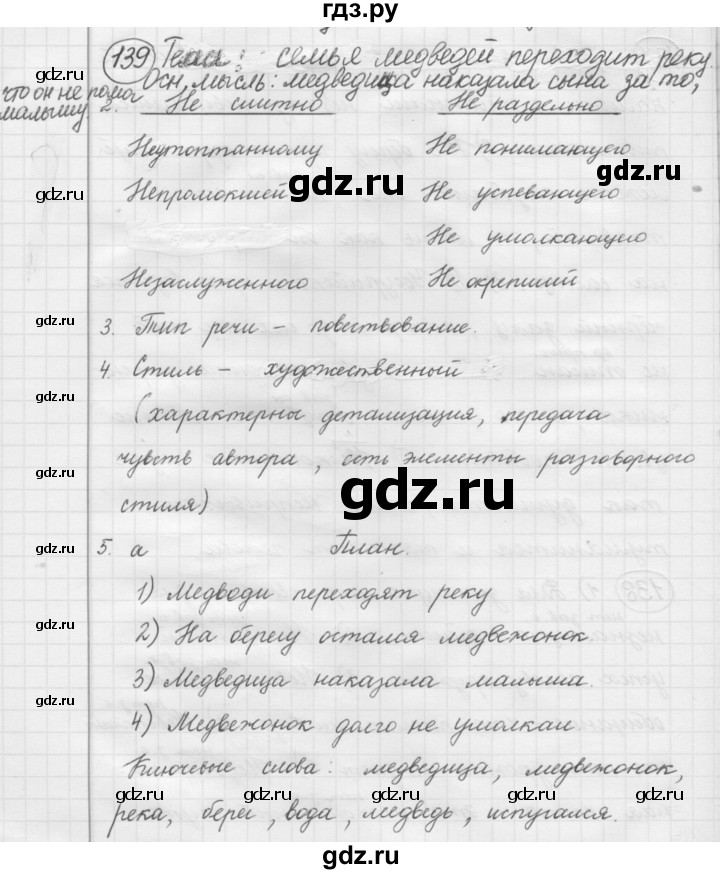 гдз.ру
139 Тема: семья медведей переходит реку.
Осн. мысль: медведица наказала сына за то,
что он не помог
малышу. 2. Не слитно Не раздельно
gdz.ru
Неутоптанному Не понимающего
gdz.ru
Непромокшей Не успевающего
gdz.ru gdz.ru gdz.ru
Не умолкающего
Незаслуженного Не окрепший
gdz.ru gdz.ru gdz.ru
3. Тип речи – повествование.
gdz.ru
4. Стиль – художественный
gdz.ru gdz.ru gdz.ru
(характерны детализация, передача
чувств автора, есть элементы разговорного
gdz.ru
стиля)
gdz.ru
5. а План.
gdz.ru
1) Медведи переходят реку
2) На берегу остался медвежонок
gdz.ru
3) Медведица наказала малыша.
gdz.ru
4) Медвежонок долго не умолкал
Ключевые слова: медведица, медвежонок,
gdz.ru gdz.ru gdz.ru gdz.ru gdz.ru
река, берег, вода, медведь, испугался.
gdz.ru